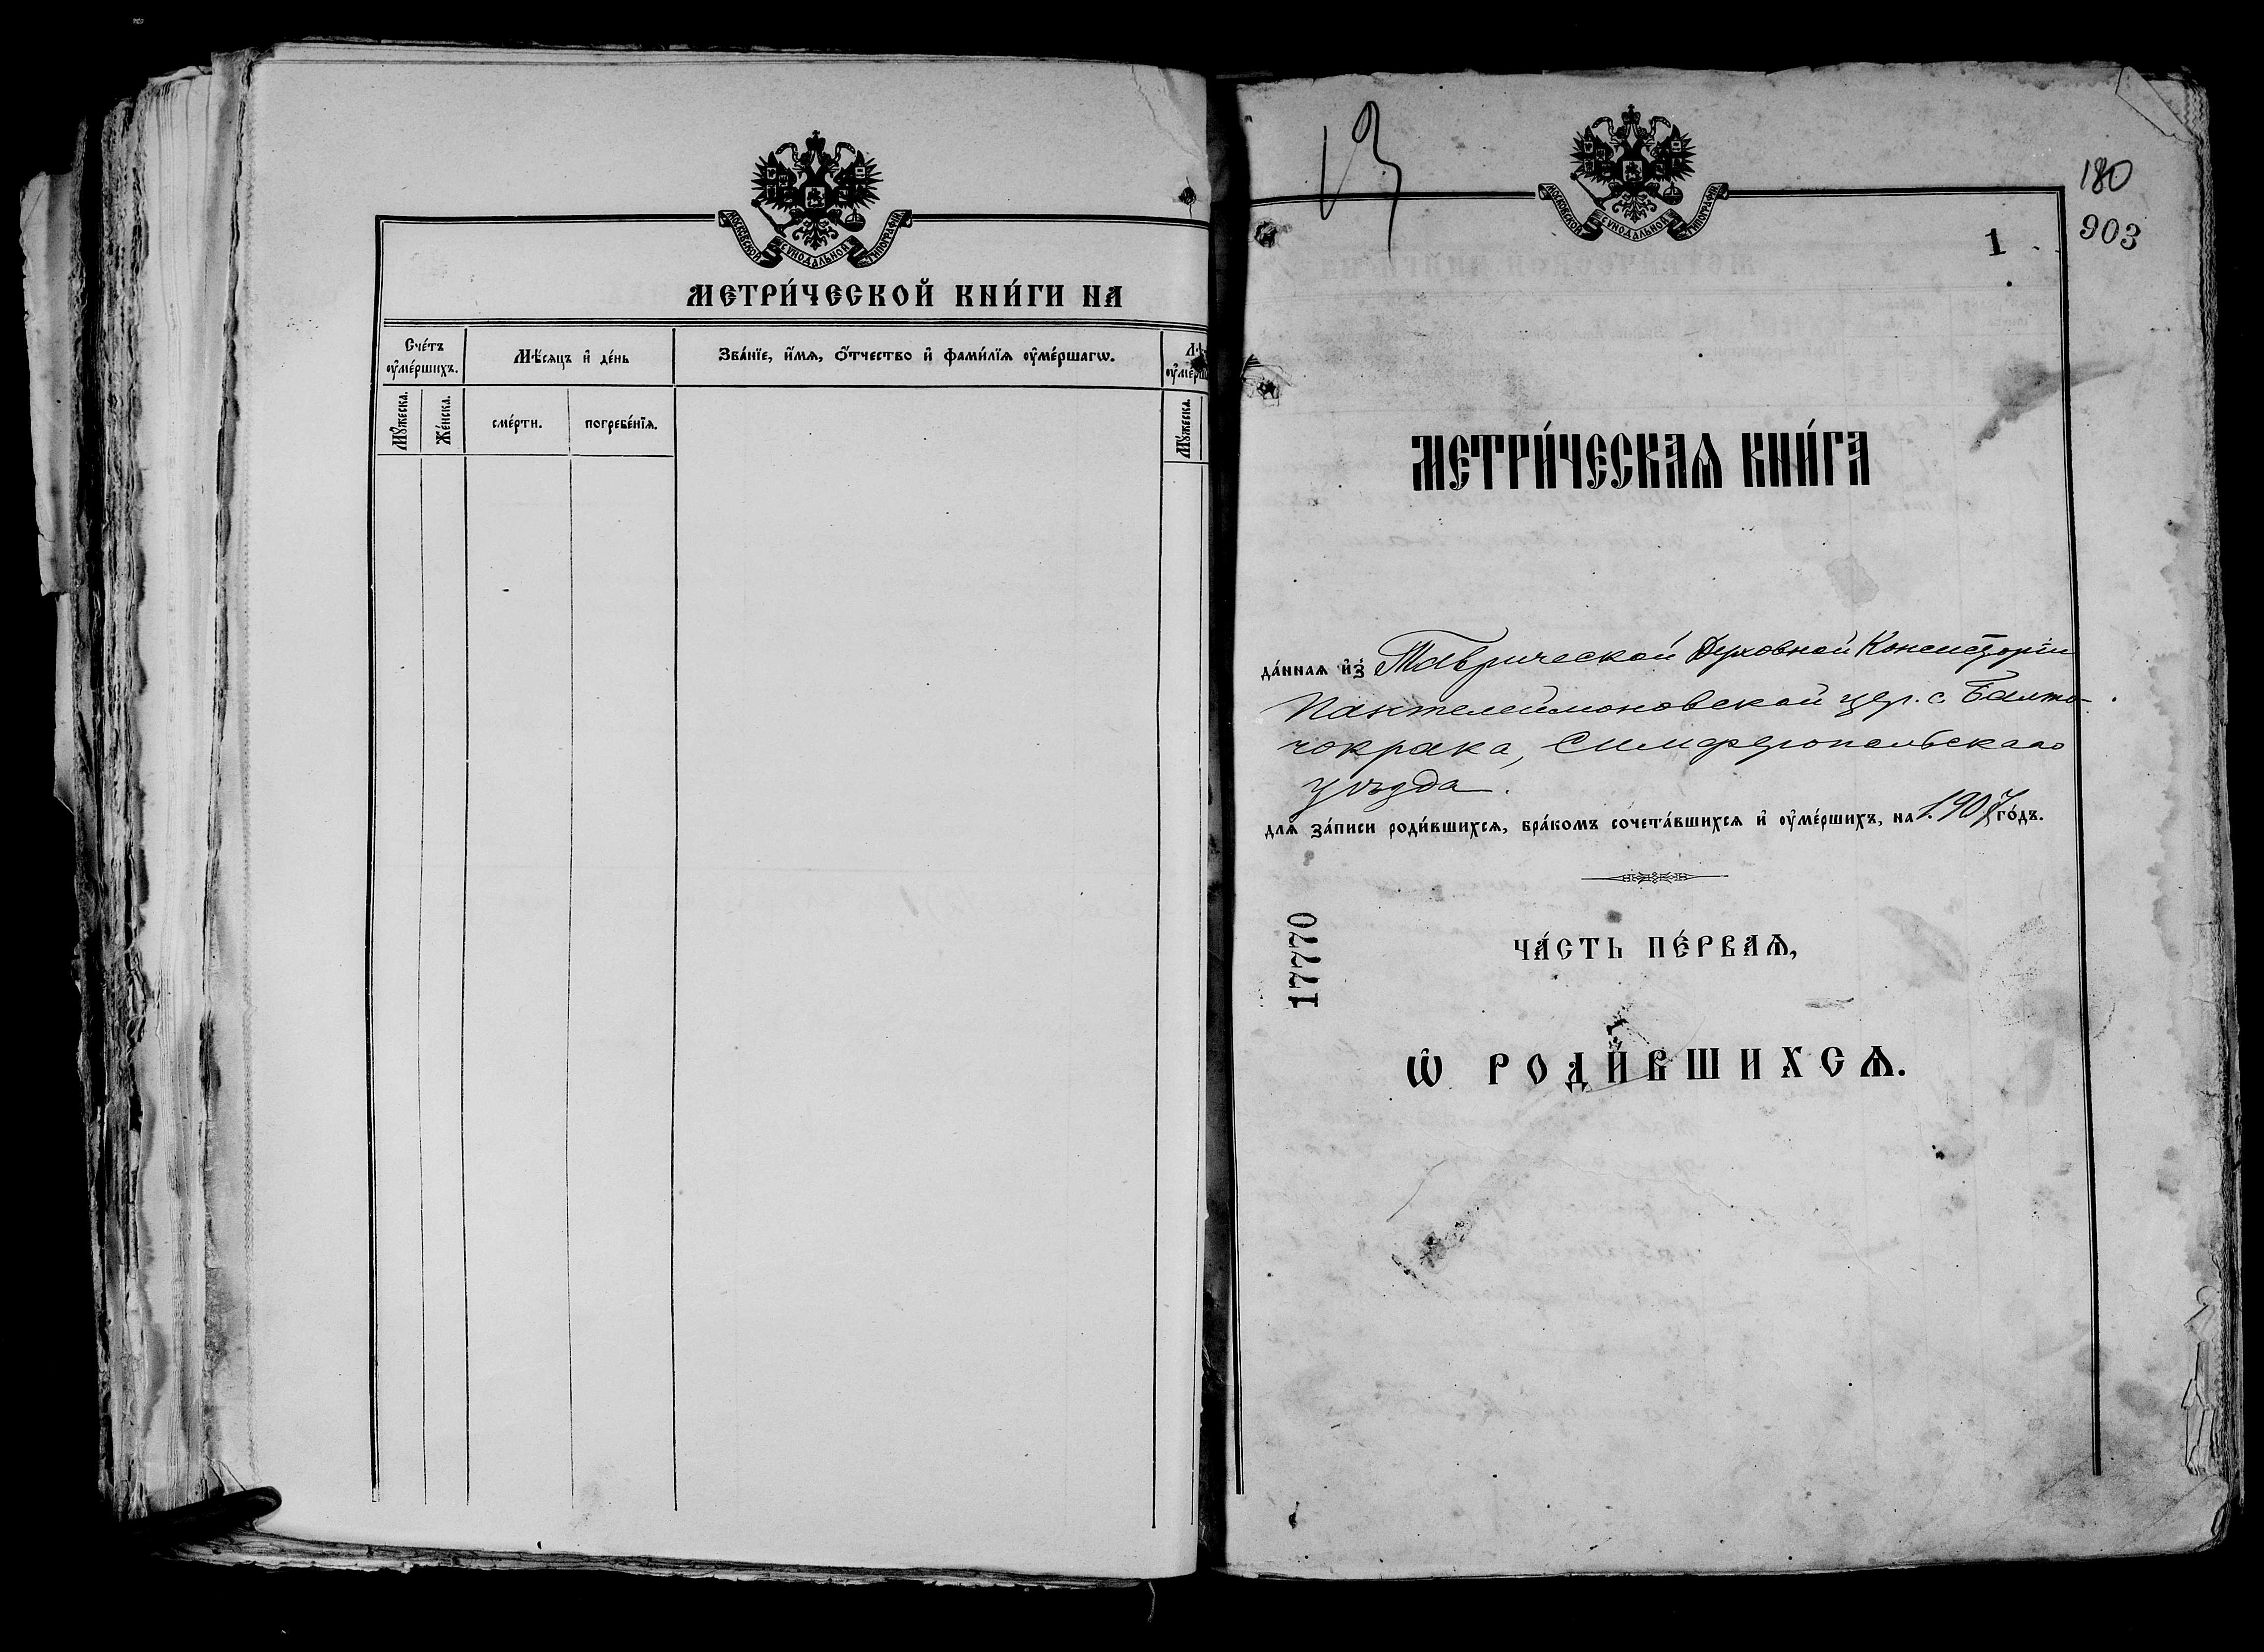 МОСКОВСКОЙ СѴНОДАЛЬНОЙ ТИПОГРАФІИ
МЕТРИ́ЧЕСКОЙ КНИ́ГИ НА
Сче́тъ ᲂу҆ме́ршихъ.
Мѣ́сяцъ и҆ де́нь
Зва́нїе, и҆́мѧ, ѻ҆́тчество и҆ фами́лїѧ ᲂу҆ме́ршагѡ.
Мꙋ́жеска.
Же́нска.
сме́рти.
погребе́нїѧ.
Мꙋ́жеска.
13
МОСКОВСКОЙ СѴНОДАЛЬНОЙ ТИПОГРАФІИ
180
903
1
МЕТРИ́ЧЕСКАѦ КНИ́ГА
да́ннаѧ и҆з̾ Таврической Духовной Консисторіи
Пантелеимоновской цер. с. Балта-
чокрака, Симферопольскаго
уѣзда.
длѧ за́писи роди́вшихсѧ, бра́комъ сочета́вшихсѧ и҆ ᲂу҆ме́ршихъ, на 1907 го́дъ.
17770
ЧА́СТЬ ПЕ́РВАѦ,
Ѡ҆ РОДИ́ВШИХСѦ.